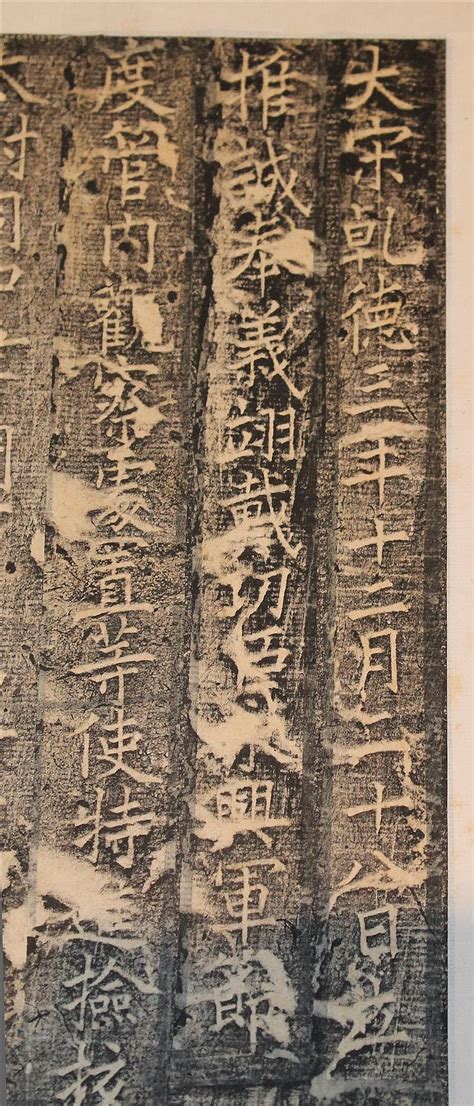 大宋乾德三年十二月二十八日
推誠奉義翊戴功臣永興軍節
度管內觀察處置等使特進檢校